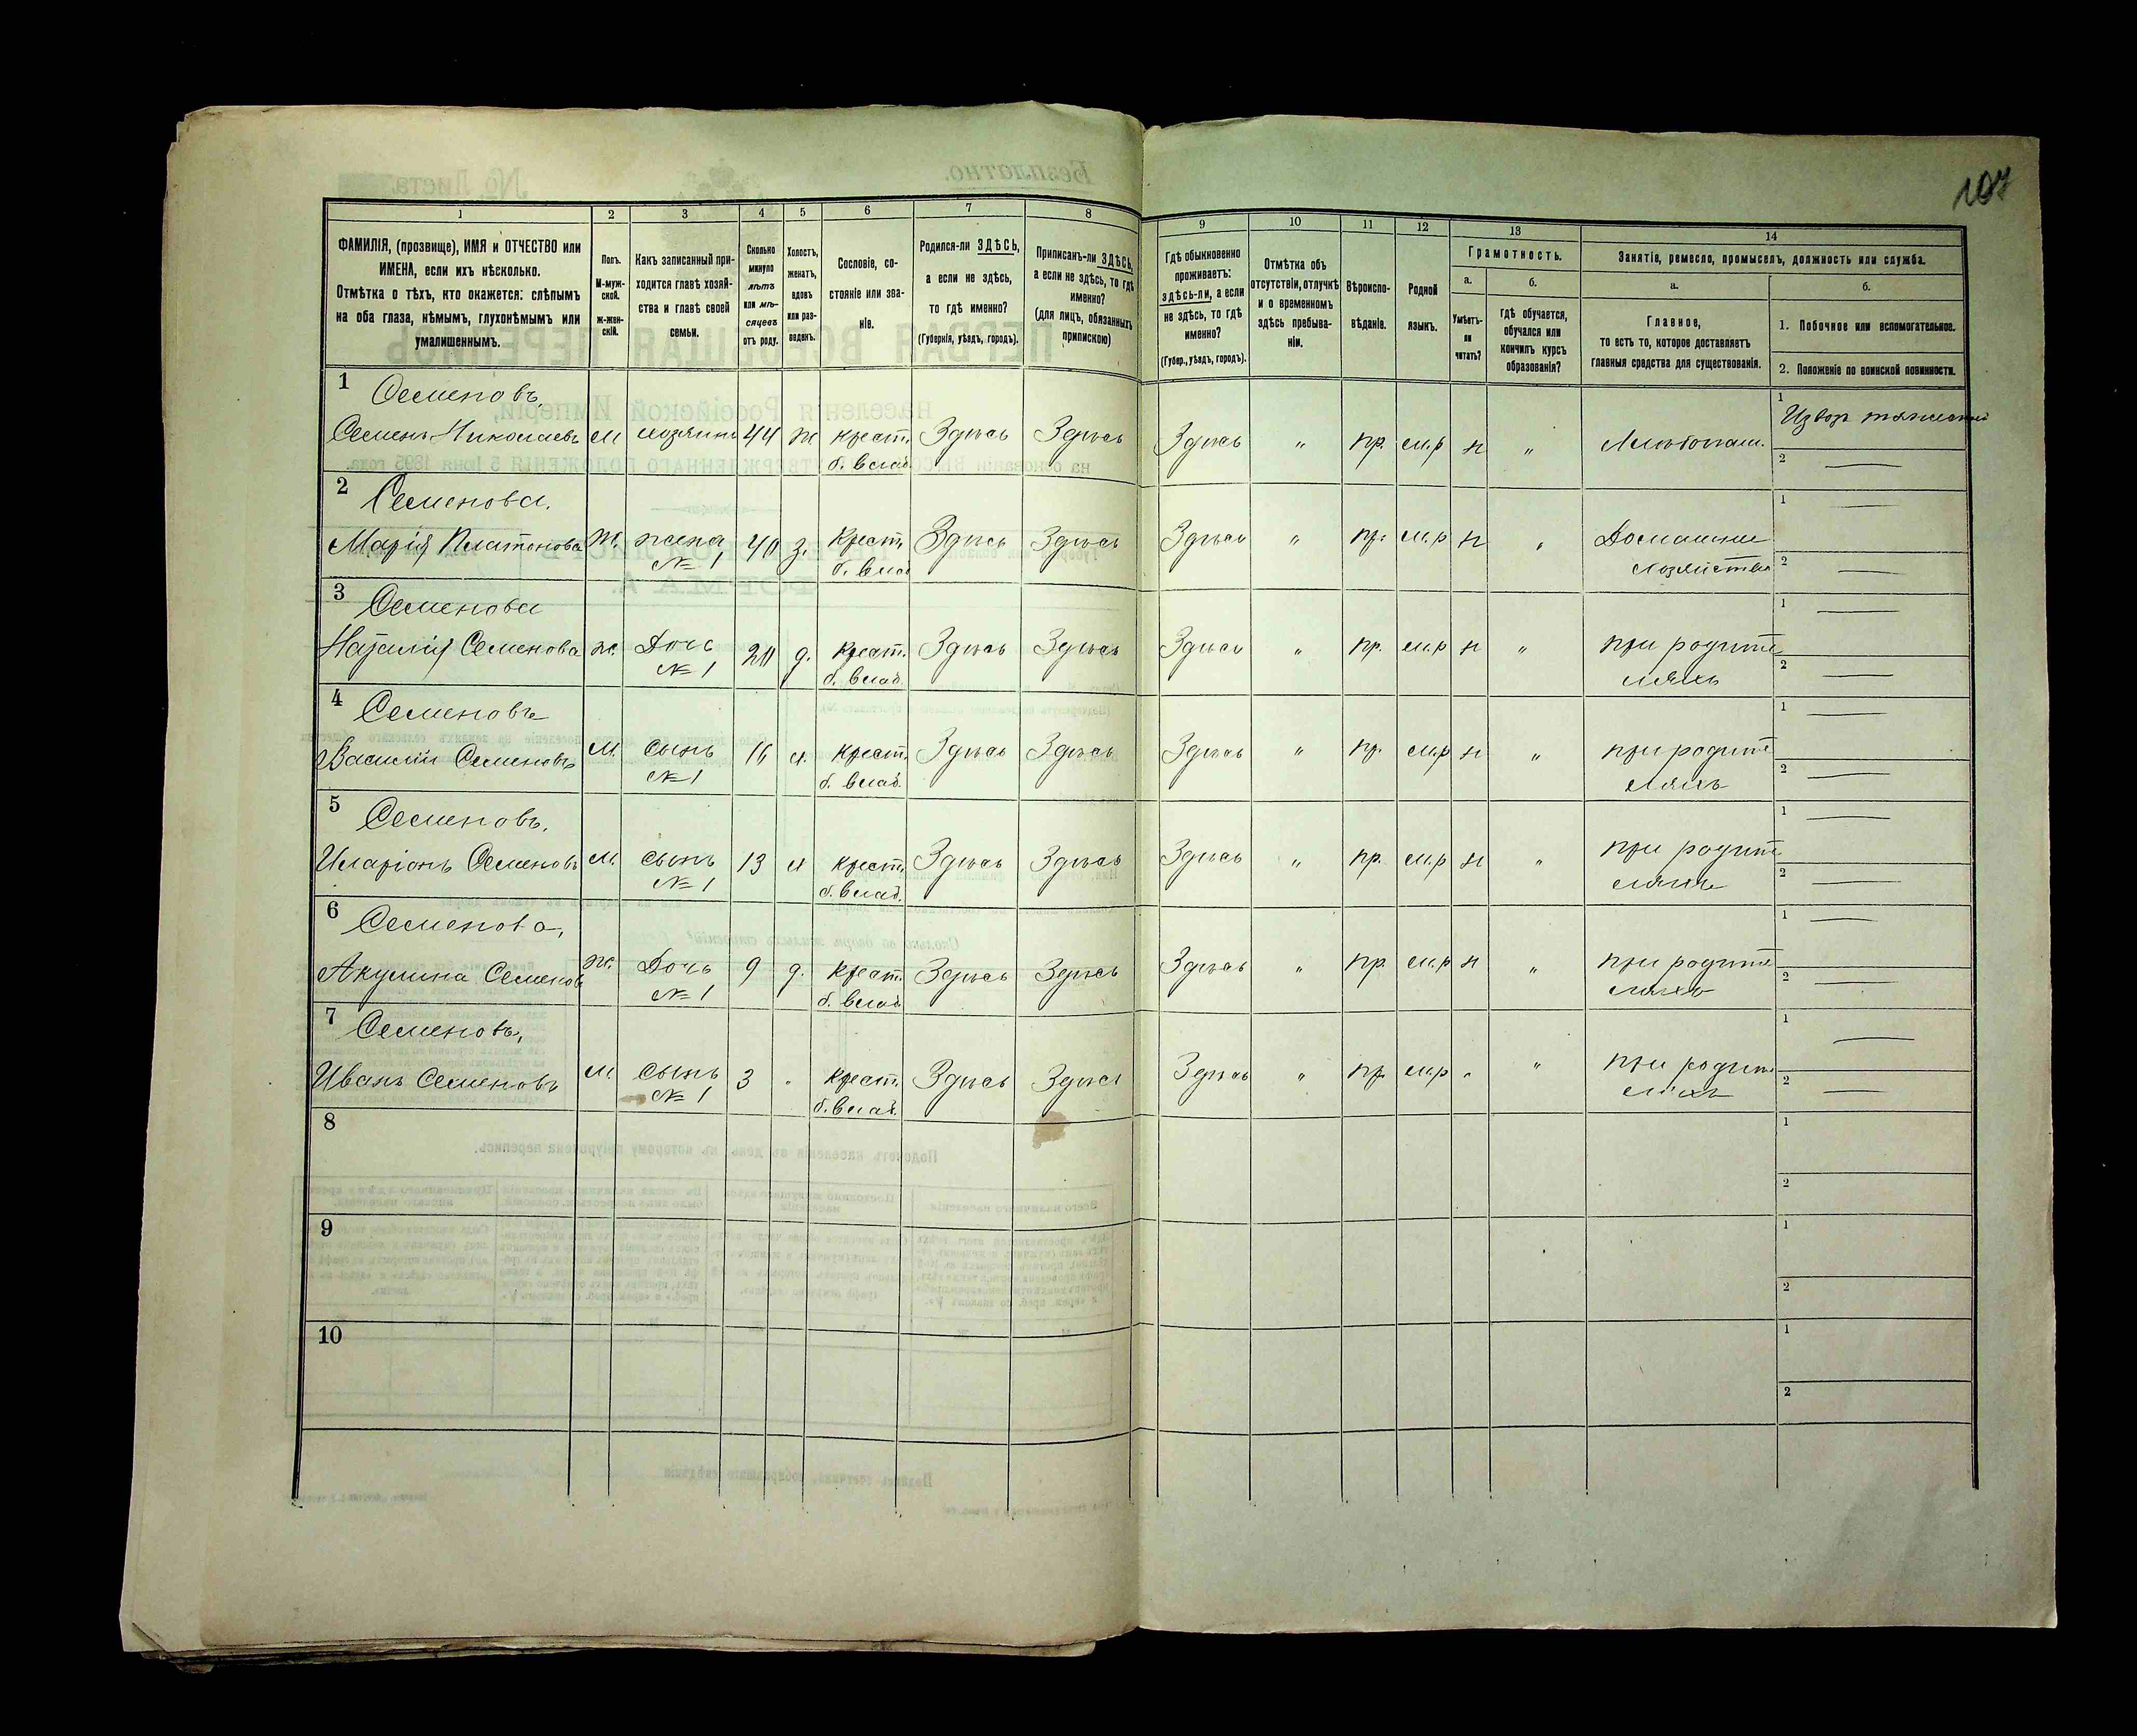 107
1 2 3 4 5 6 7 8 9 10 11 12 13 14
ФАМИЛІЯ, (прозвище), ИМЯ и ОТЧЕСТВО или
ИМЕНА, если ихъ нѣсколько.
Отмѣтка о тѣхъ, кто окажется: слѣпымъ
на оба глаза, нѣмымъ, глухонѣмымъ или
умалишеннымъ.
Полъ.
М-муж-
ской.
Ж-жен-
скій.
Какъ записанный при-
ходится главѣ хозяй-
ства и главѣ своей
семьи.
Сколько
минуло
лѣтъ
или мѣ-
сяцевъ
отъ роду.
Холостъ,
женатъ,
вдовъ
или раз-
веденъ.
Сословіе, со-
стояніе или зва-
ніе.
Родился-ли ЗДѢСЬ,
а если не здѣсь,
то гдѣ именно?
(Губернія, уѣздъ, городъ).
Приписанъ-ли ЗДѢСЬ,
а если не здѣсь, то гдѣ
именно?
(для лицъ, обязанныхъ
припискою)
Гдѣ обыкновенно
проживаетъ:
здѣсь-ли, а если
не здѣсь, то гдѣ
именно?
(Губер., уѣздъ, городъ).
Отмѣтка объ
отсутствіи, отлучкѣ
и о временномъ
здѣсь пребыва-
ніи.
Вѣроиспо-
вѣданіе.
Родной
языкъ.
Грамотность.
а.
Умѣетъ-
ли
читать?
б.
гдѣ обучается,
обучался или
кончилъ курсъ
образованія?
Занятіе, ремесло, промыселъ, должность или служба.
а.
Главное,
то есть то, которое доставляетъ
главныя средства для существованія.
б.
1. Побочное или вспомогательное.
2. Положеніе по воинской повинности.
1 Семеновъ,
Семенъ Николаевъ М хозяинъ 44 ж крест. Здѣсь Здѣсь Здѣсь " пр. м.р н " 1 Извоз
б. влад. 2
2 Семенова.
Марія Платонова Ж. жена 40 з. Крест. Здѣсь Здѣсь Здѣсь " пр. м.р н " Домашнее 1
№ 1 б. влад хозяйство 2
3 Семенова
Наталія Семенова ж. Дочь 20 д. Крест. Здѣсь Здѣсь Здѣсь " пр. м.р н " при родите 1
№ 1 б. влад. ляхъ 2
4 Семеновъ
Василій Семеновъ М. сынъ 16 х. крест. Здѣсь Здѣсь Здѣсь " пр. м.р н " при родите 1
№ 1 б. влад. ляхъ 2
5 Семеновъ.
Иларіонъ Семеновъ М. сынъ 13 х крест. Здѣсь Здѣсь Здѣсь " пр. м.р н " при родите 1
№ 1 б. влад. ляхъ 2
6 Семенова,
Акулина Семенов ж. Дочь 9 д. крест. Здѣсь Здѣсь Здѣсь " пр. м.р н " при родите 1
№ 1 б. влад. ляхъ 2
7 Семеновъ,
Иванъ Семеновъ М. сынъ 3 " крест. Здѣсь Здѣсь Здѣсь " пр. м.р " " при родите 1
№ 1 б. влад. ляхъ 2
8 1
2
9 1
2
10 1
2